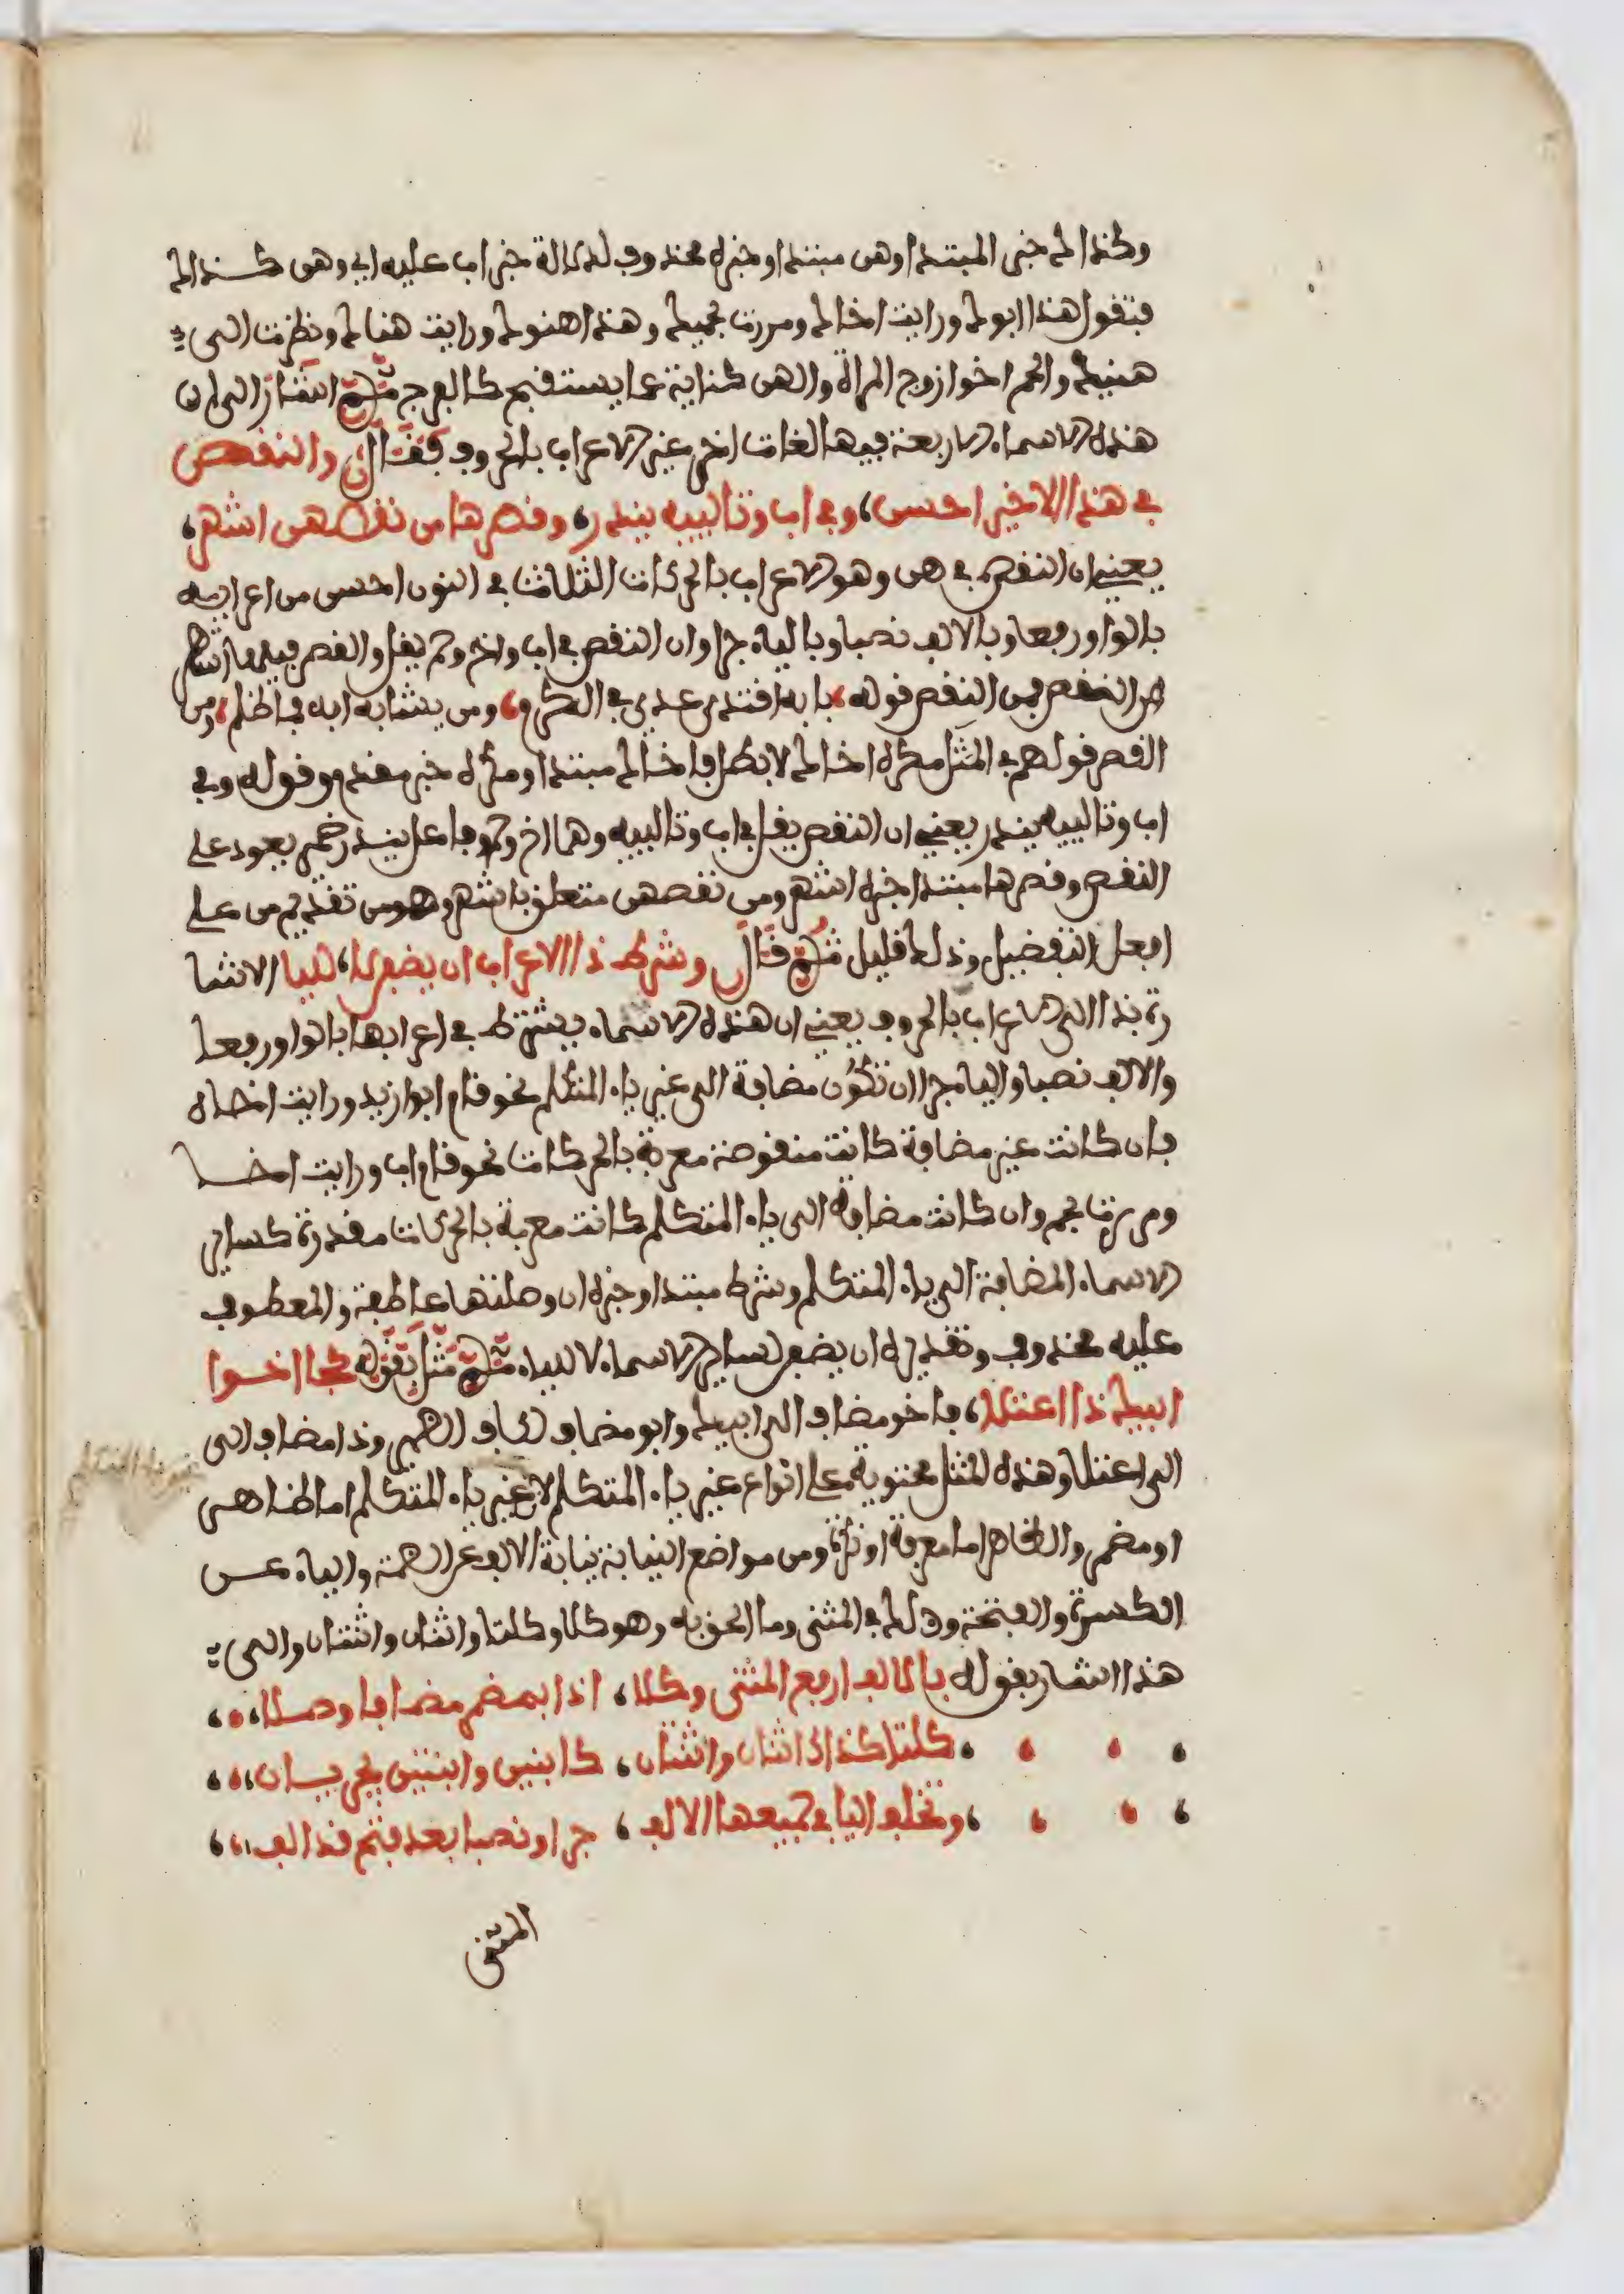 وكذاك خبر المبتدا وهن مبتدا وخبره محذوف لدلالة خبر اب عليه اي وهن كذاك
فتقول هذا ابوك ورايت اخاك ومررت بحميك وهذا هنوك ورايت هناك ونظرت الى
هنيك والحم اخوا زوج المراة والهن كناية عما يستقبح كالفرج ثم اشار الى ان
هذه الاسماء الاربعة فيها لغات اخر غير الاعراب بالحروف فقال والنقص
في هذا الاخير احسن، وفي اب وتالييه يندر، وقصرها من نقصهن اشهر،
يعني ان النقص في هن وهو الاعراب بالحركات الثلاث في النون احسن من اعرابه
بالواو رفعا وبالالف نصبا وبالياء جرا وان النقص في اب واخ وحم يقل والقصر فيها اشهر
من النقص فمن النقص قوله بابه اقتدى عدي في الكرم، ومن يشابه ابه فما ظلم، ومن
القصر قولهم في المثل مكره اخاك لا بطل فاخاك مبتدا ومكره خبر مقدم وقوله وفي
اب وتالييه يندر يعني ان النقص يقل في اب وتالييه وهما اخ وحم وفاعل يندر ضمير يعود على
النقص وقصرها مبتدا خبره اشهر ومن نقصهن متعلق باشهر وهو من تقديم من على
افعل التفضيل وذلك قليل ثم قال وشرط ذا الاعراب ان يضفن لا، لليا الاشا
رة بذا الى الاعراب بالحروف يعني ان هذه الاسماء يشترط في اعرابها بالواو رفعا
والالف نصبا والياء جرا ان تكون مضافة الى غير ياء المتكلم نحو قام ابوا زيد ورايت اخاه
فان كانت غير مضافة كانت منقوصة معربة بالحركات نحو قام اب ورايت اخا
ومررت بحم وان كانت مضافة الى ياء المتكلم كانت معربة بالحركات مقدرة كساير
الاسماء المضافة الى ياء المتكلم وشرط مبتدا وخبره ان وصلتها عاطفة والمعطوف
عليه محذوف وتقديره ان يضفن لساير الاسماء لا للياء ثم مثل بقوله كجا اخوا
ابيك ذا اعتلا، فاخو مضاف الى ابيك وابو مضاف للكاف الضمير وذا مضاف الى
الى اعتلا وهذه المثل محتوية على انواع غير ياء المتكلم لان غير ياء المتكلم اما ظاهر
او مضمر والظاهر اما معرفة او نكرة ومن مواضع النيابة نيابة الالف عن الضمة والياء عن
الكسرة والفتحة وذلك في المثنى وما الحق به وهو كلا وكلتا واثنان واثنتان والى
هذا اشار بقوله بالالف ارفع المثنى وكلا، اذا بمضمر مضافا وصلا،
كلتا كذاك اثنان واثنتان، كابنين وابنتين يجريان،
وتخلف اليا في جميعها الالف، جرا ونصبا بعد فتح قد الف،
المثنى